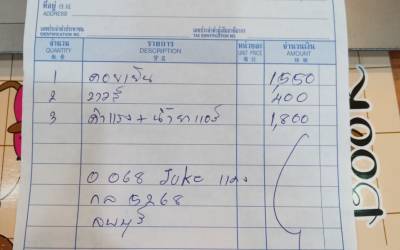 ที่อยู่
ADDRESS
เลขประจำตัวประชาชน
IDENTIFICATION NO.
เลขประจำตัวผู้เสียภาษีอากร
TAX IDENTIFICATION NO.
จำนวน รายการ หน่วยละ จำนวนเงิน
QUANTITY DESCRIPTION UNIT PRICE AMOUNT
1 คอยเย็น 1,550
2 วาวล์ 400
3 ค่าแรง + น้ำยาแอร์ 1,800
0 068 Juke แดง
กล 5268
ลพบุรี